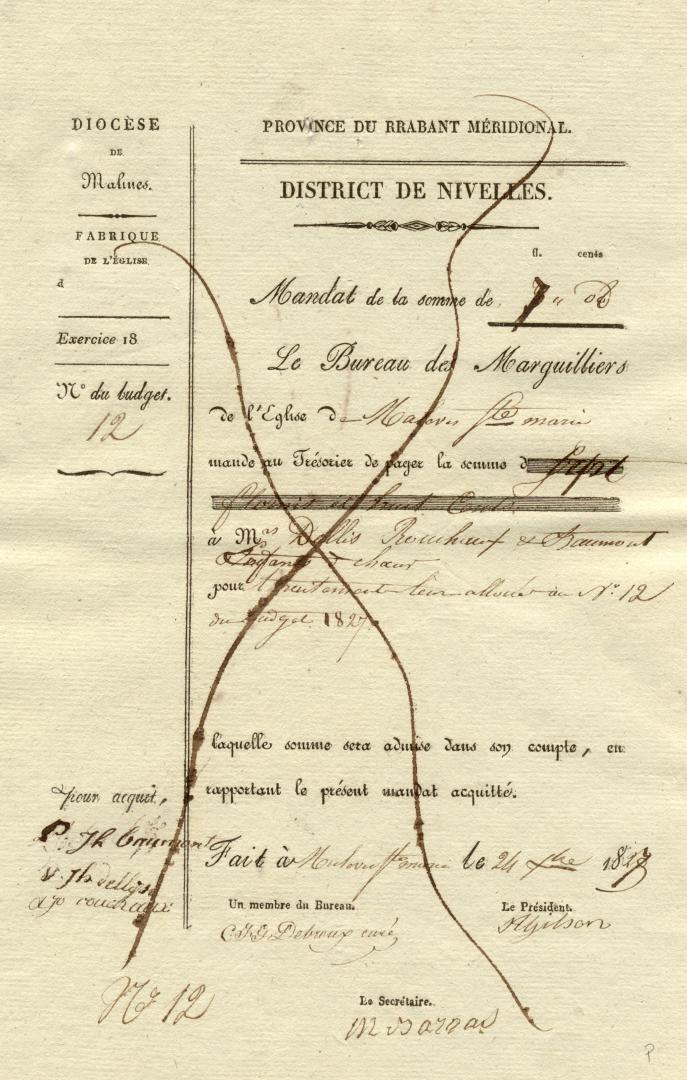 DIOCÈSE
DE
Malines.
FABRIQUE
DE L'ÉGLISE
d
Exercice 18
N° du budget.
12
PROVINCE DU RRABANT MÉRIDIONAL.
DISTRICT DE NIVELLES.
fl. cents
Mandat de la somme de 7 " 08
Le Bureau des Marguilliers
de l'Eglise de Maleves Ste marie
mande au Trésorier de payer la somme de Sept
florins et huit Cents
à Mrs Dellis Rouchaux & Baumont
Enfants de chœur
pour traitement leur alloué au N° 12
du Budget 1827.
laquelle somme sera admise dans son compte, en
rapportant le présent mandat acquitté.
Pour acquit,
P. Jh Baumont
Jh dellis
rouchaux
Fait à Maleves Ste marie le 24 xbre 1827
Un membre du Bureau.
Debroux curé
Le Président.
Gilson
Le Secrétaire.
N° 12